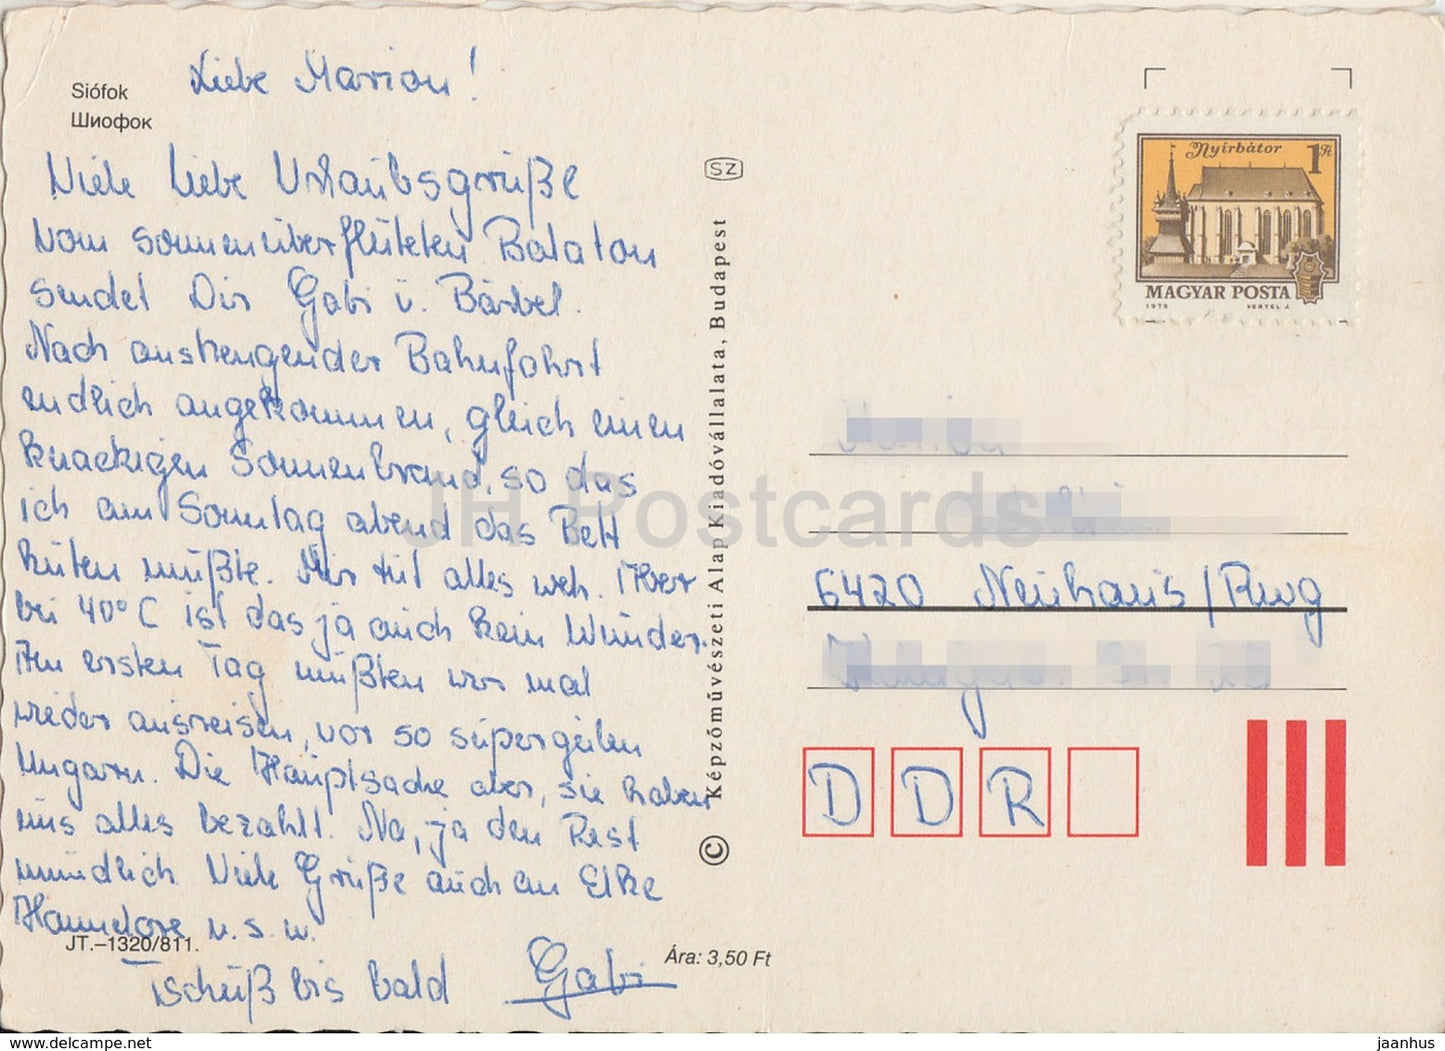 Siófok
Шиофок
Liebe Marion!
Viele liebe Urlaubsgrüße
vom sonnenüberfluteten Balaton
sendet Dir Gabi u. Bärbel.
Nach anstrengender Bahnfahrt
endlich angekommen, gleich einen
knackigen Sonnenbrand, so das
ich am Sonntag abend das Bett
hüten mußte. Mir tut alles weh. Aber
bei 40°C ist das ja auch kein Wunder.
Am ersten Tag mußten wir mal
wieder ausreisen, vor so supergeilen
Ungarn. Die Hauptsache aber, sie haben
uns alles bezahlt. Na, ja den Rest
mündlich. Viele Grüße auch an Elke
Hannelore u.s.w.
JT.–1320/811.
Tschüß bis bald Gabi
Ára: 3,50 Ft
SZ
© Képzőművészeti Alap Kiadóvállalata, Budapest
Nyírbátor 1 Ft
MAGYAR POSTA
1979 VERTEL J.
6420 Neuhaus/Rwg
DDR
JH Postcards
www.delcampe.net
jaanhus